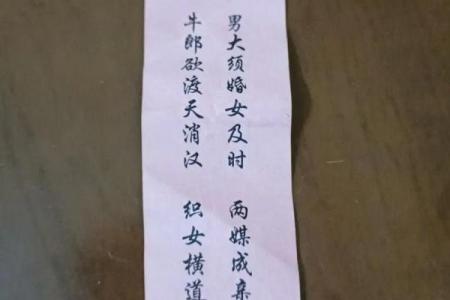 男大须婚女及时 两媒成亲
牛郎欲渡天消汉 织女横道